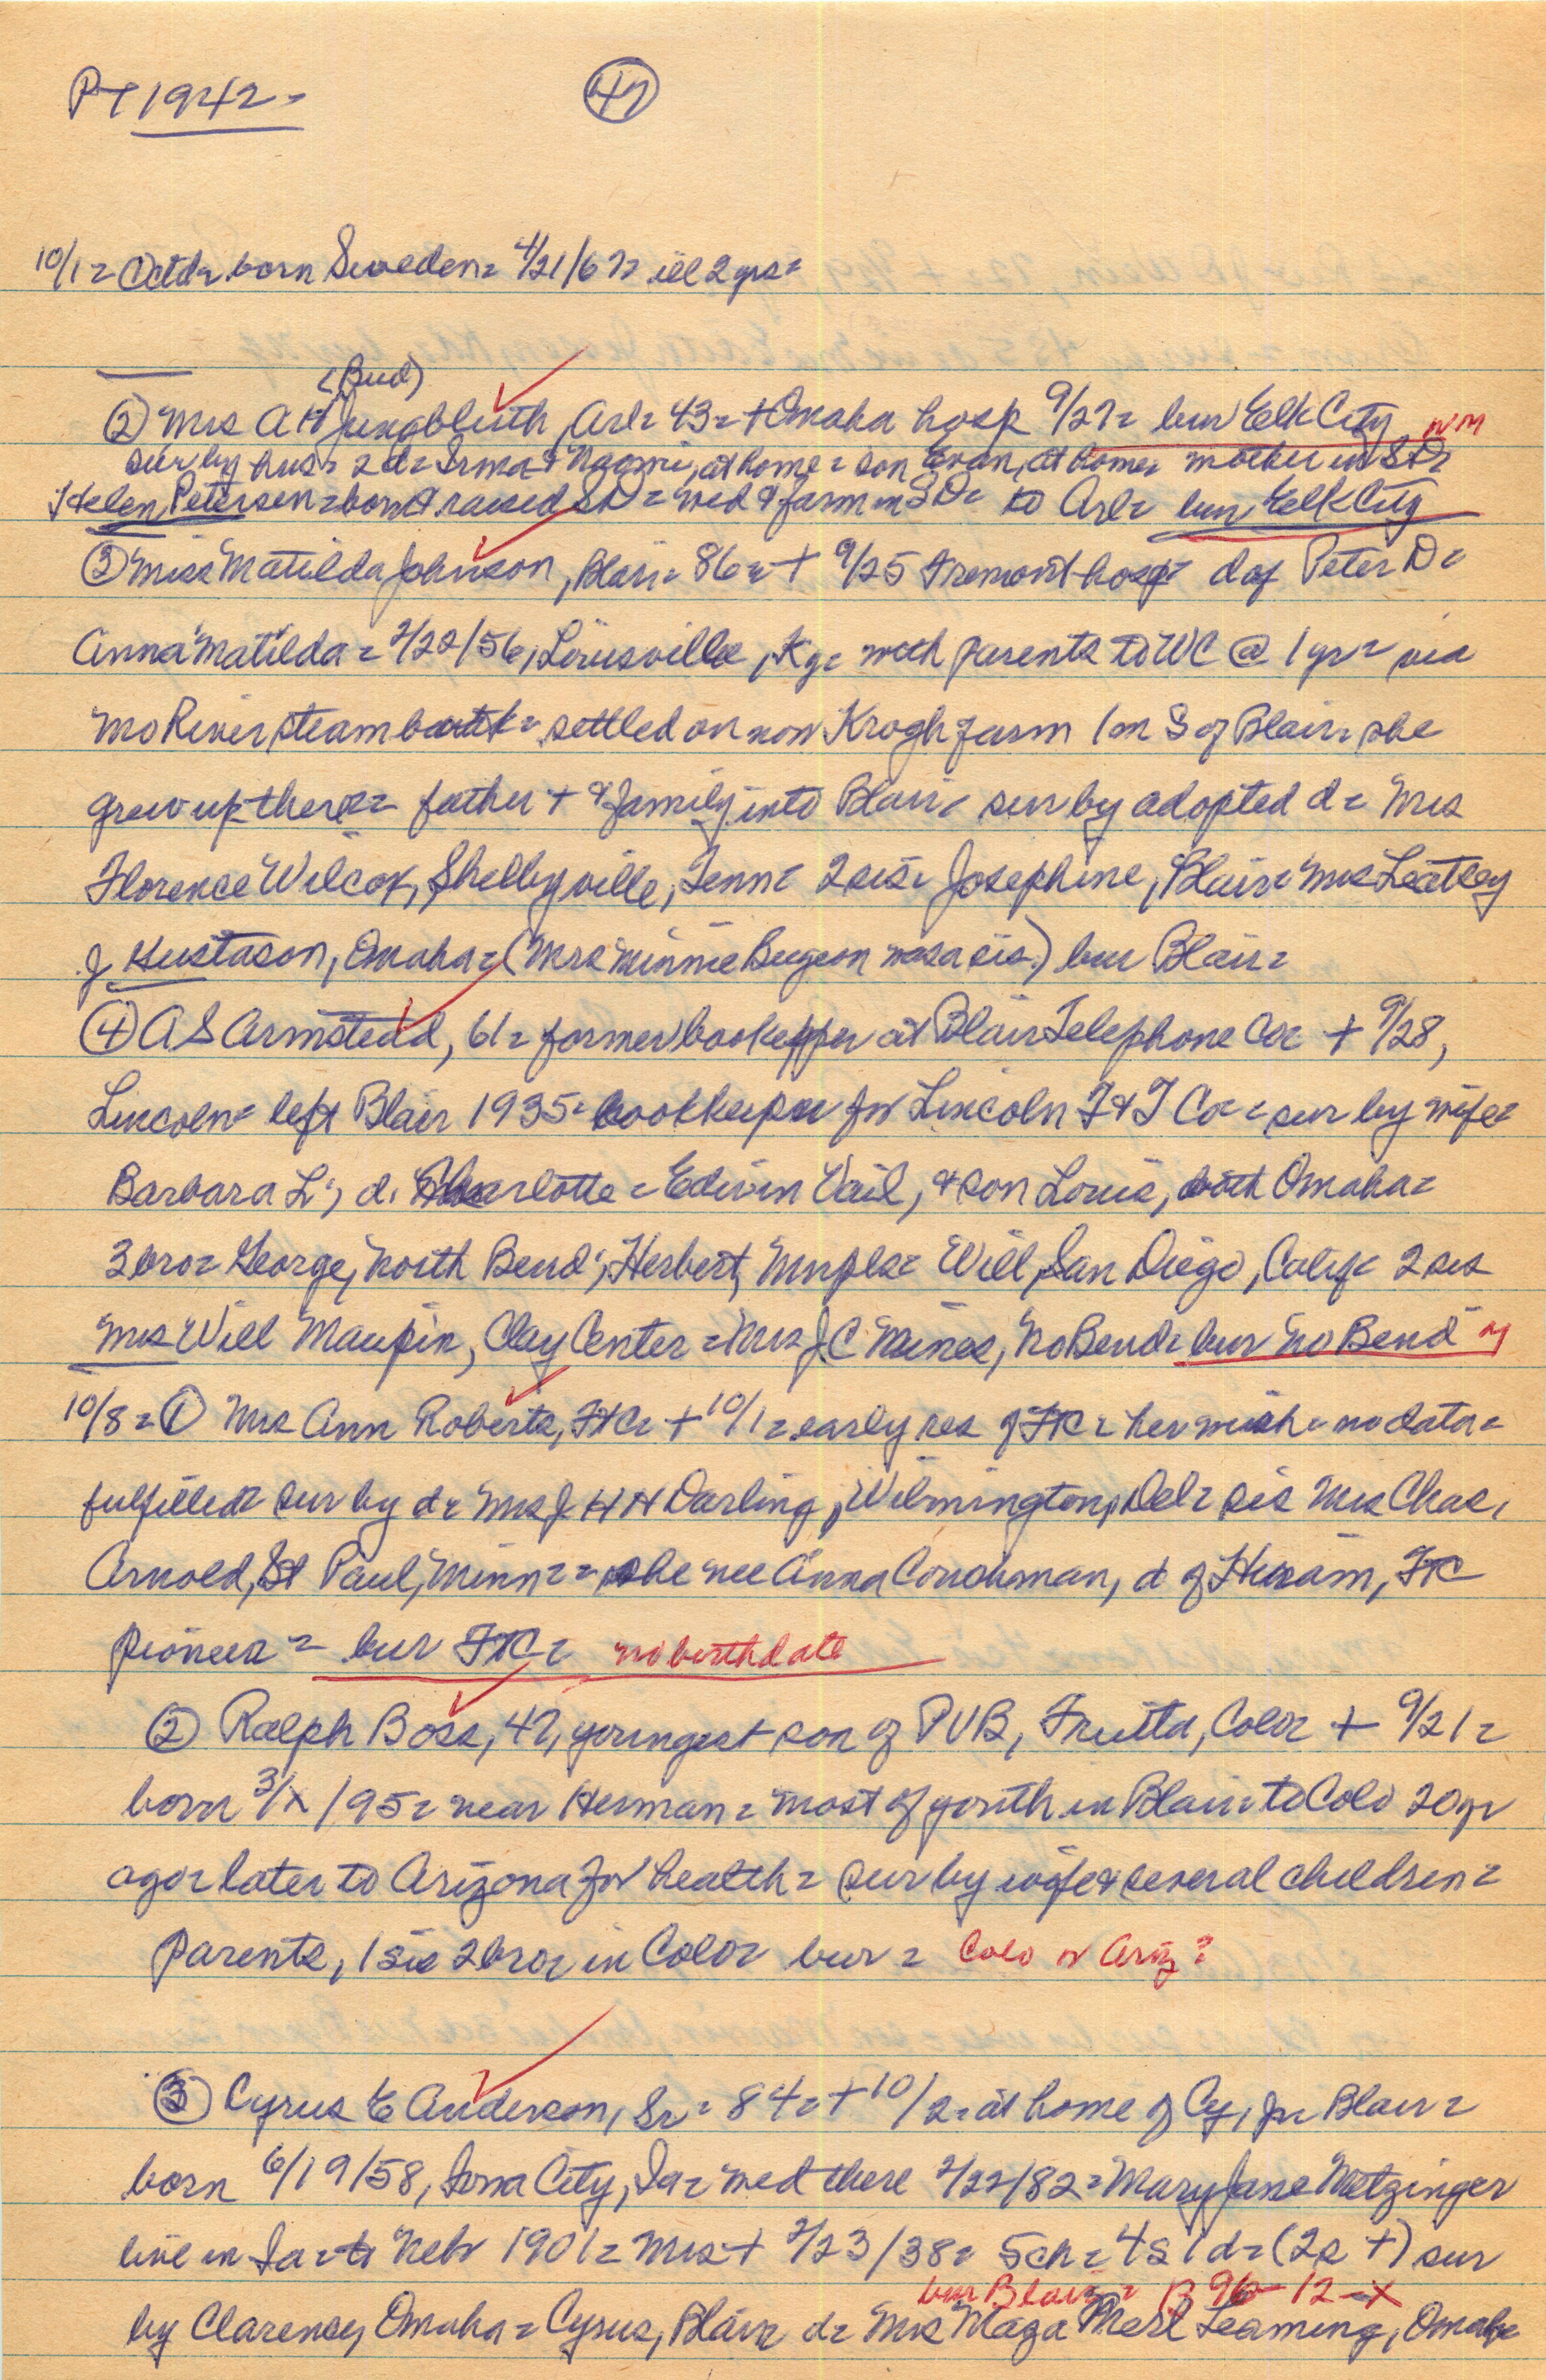 PT 1942 =
47
10/1 = Octd = born Sweden = 4/21/67 = ill 2 yrs =
(Bud)
② Mrs A H Jungbluth, Arl = 43 = + Omaha hosp 9/27 = bur Elk City
sur by hus = 2 d = Irma & Naomi, at home = son Evan, at home = mother in SD =
Helen Petersen = born & raised SD = wed & farm in SD = to Arl = bur Elk City
③ Miss Matilda Johnson, Blair = 86 = + 9/25 Fremont hosp = d of Peter D =
Anna "Matilda" = 2/22/56, Louisville, Ky = with parents to WC @ 1 yr = via
Mo River steamboat = settled on now Krogh farm 1 m S of Blair = she
grew up there = father + & family into Blair = sur by adopted d = Mrs
Florence Wilcox, Shelbyville, Tenn = 2 sis = Josephine, Blair = Mrs
J Hustason, Omaha = (Mrs Minnie was a sis.) bur Blair =
④ A S Armstead, 61 = former bookepper at Blair Telephone Co = + 9/28,
Lincoln = left Blair 1935 = bookkeeper for Lincoln T & T Co = sur by wife =
Barbara L; d. Charlotte = Edwin Vail, & son Louis, both Omaha =
3 bro = George, North Bend; Herbert, Mnpls = Will, San Diego, Calif = 2 sis
Mrs Will Maupin, Clay Center = Mrs J C Mines, No Bend = bur No Bend
10/8 = ① Mrs Ann Roberts, FtC = + 10/1 = early res of FtC = her wish = no data =
fulfilled = sur by d = Mrs J H H Darling, Wilmington, Del = sis Mrs Chas,
Arnold, St Paul, Minn = = she nee Anna Couchman, d of Hiram, FtC
pioneer = bur FtC = no birthdate
② Ralph Boss, 47, youngest son of P V B, Fruita, Colo = + 9/21 =
born 3/x/95 = near Herman = most of youth in Blair = to Colo 20 yr
ago = later to Arizona for health = sur by wife & several children =
parents, 1 sis 2 bro = in Colo = bur = Colo or Ariz?
③ Cyrus E Anderson, Sr = 84 = + 10/2 = at home of Cy, Jr Blair =
born 6/19/58, Iowa City, Ia = wed there 2/22/82 = Mary Jane Metzinger
live in Ia = to Nebr 1901 = Mrs + 2/23/38 = 5 ch = 4 s 1 d = (2 s +) sur
bur Blair = B 96-12-x
by Clarence, Omaha = Cyrus, Blair = d = Mrs Maza Merl Leaming, Omaha